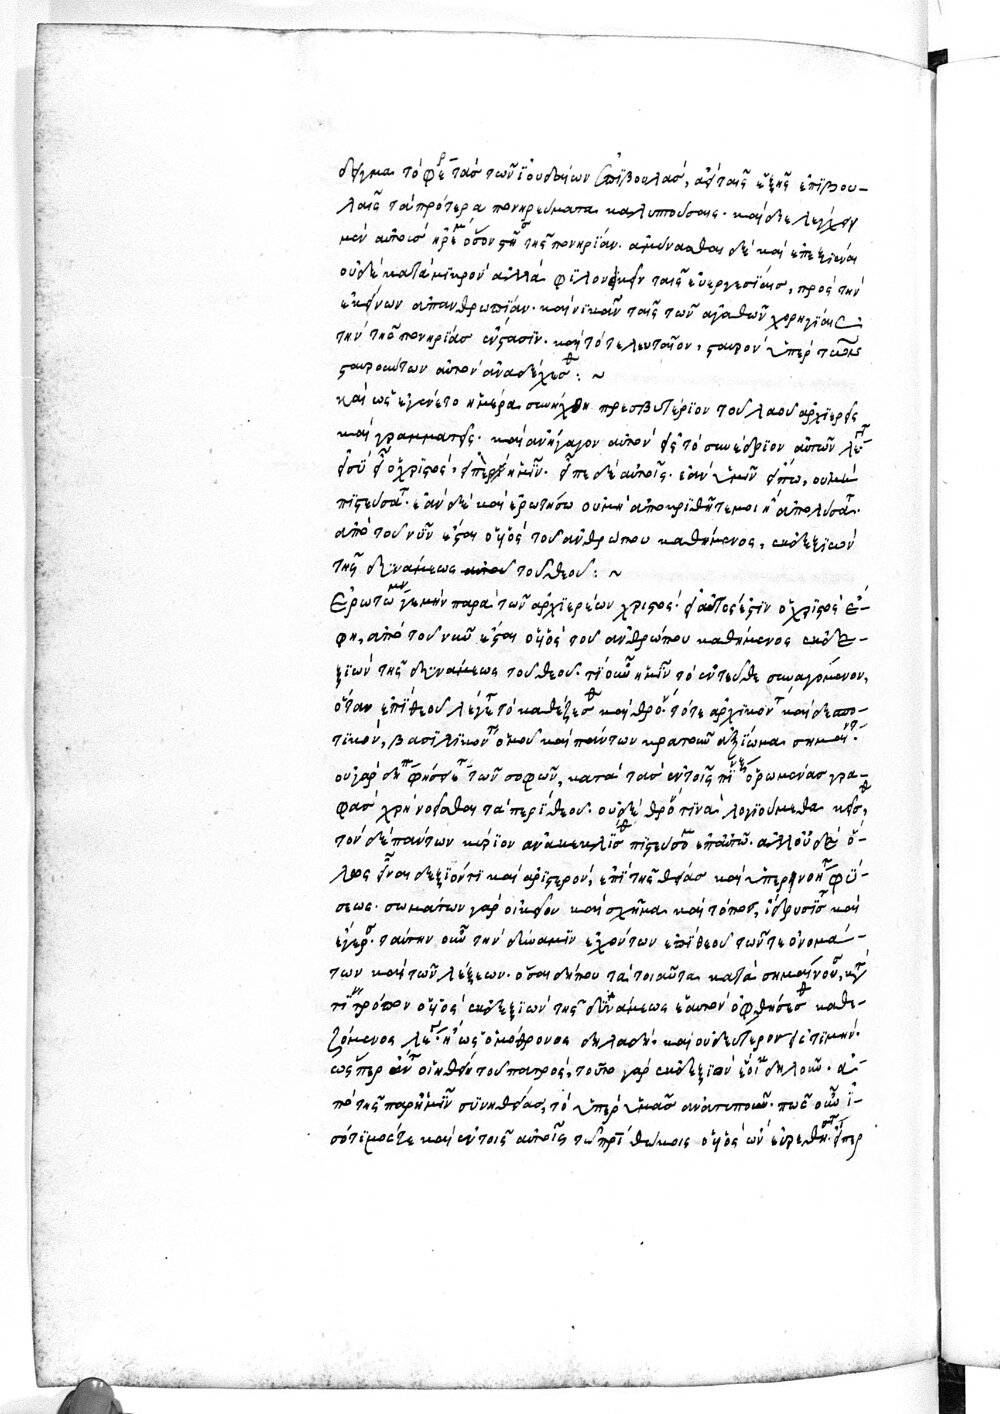 δεῖγμα τὸ φέρειν τὰς τῶν ἰουδαίων ἐπιβουλάς, αὐταῖς ἑξῆς ἐπιβου-
λαῖς τὰ πρότερα πονηρεύματα καλυπτούσαις. καὶ διελέγχειν
μὲν αὐτοὺς ἠρέμα ὅσον τῆς πονηρίαν. ἀμύνασθαι δὲ καὶ ἐπεξιέναι
οὐδὲ κατὰ μικρόν ἀλλὰ φιλονεικεῖν ταῖς εὐεργεσίαις, πρὸς τὴν
ἐκείνων ἀπανθρωπίαν. καὶ νικᾶν ταῖς τῶν ἀγαθῶν χορηγίαις
τὴν τῆς πονηρίας ἔνστασιν. καὶ τὸ τελευταῖον, σταυρὸν ὑπὲρ τῶν
σταυρούντων αὐτὸν ἀναδέχεσθαι: ~
καὶ ὡς ἐγένετο ἡμέρα συνήχθη πρεσβυτέριον τοῦ λαοῦ ἀρχιερεῖς
καὶ γραμματεῖς. καὶ ἀνήγαγον αὐτὸν εἰς τὸ συνέδριον αὐτῶν λέγοντες
εἰ σὺ εἶ ὁ χριστός, εἰπὲ ἡμῖν. εἶπε δὲ αὐτοῖς. ἐὰν ὑμῖν εἴπω, οὐ μὴ
πιστεύσητε. ἐὰν δὲ καὶ ἐρωτήσω οὐ μὴ ἀποκριθῆτέ μοι ἢ ἀπολύσητε.
ἀπὸ τοῦ νῦν ἔσται ὁ υἱὸς τοῦ ἀνθρώπου καθήμενος, ἐκ δεξιῶν
τῆς δυνάμεως αὐτοῦ τοῦ θεοῦ: ~
Ἐρωτώμενος γε μὴν παρὰ τῶν ἀρχιερέων χριστός. εἰ αὐτός ἐστιν ὁ χριστός ἔ-
φη, ἀπὸ τοῦ νῦν ἔσται ὁ υἱὸς τοῦ ἀνθρώπου καθήμενος ἐκ δε-
ξιῶν τῆς δυνάμεως τοῦ θεοῦ. τί οὖν ἡμῖν τὸ ἐντεῦθε συναγόμενον,
ὅταν ἐπὶ θεοῦ λέγηται τὸ καθέζεσθαι καὶ θρόνος. τό τε ἀρχικὸν καὶ δεσπο-
τικόν, βασιλικὸν ὁμοῦ καὶ πάντων κρατοῦν ἀξίωμα σημαίνεται.
οὐ γὰρ δή πω φήσει τις τῶν σοφῶν, κατὰ τὰς ἐν τοῖς πίναξιν ὁρωμένας γρα-
φὰς χρῆναι νοεῖσθαι τὰ περὶ θεοῦ. οὐδὲ θρόνον τινὰ λογιούμεθα κεῖσθαι,
τὸν δὲ πάντων κύριον ἀνακεκλίσθαι πιστεύσομεν ἐπ᾽ αὐτῷ. ἀλλ᾽ οὐδὲ ὅ-
λως εἶναι δεξιόν τι καὶ ἀριστερόν, ἐπὶ τῆς θείας καὶ ὑπὲρ νοῦν φύ-
σεως. σωμάτων γὰρ οἰκεῖον καὶ σχῆμα καὶ τόπος, ἵδρυσις καὶ
ἔγερσις. ταύτην οὖν τὴν δύναμιν ἐχόντων ἐπὶ θεοῦ τῶν τε ὀνομά-
των καὶ τῶν λέξεων. ὅσαι δήπου τὰ τοιαῦτα κατασημαίνουσι,
τίνα τρόπον ὁ υἱὸς ἐκ δεξιῶν τῆς δυνάμεως ἑαυτὸν ὀφθήσεσθαι καθε-
ζόμενος λέγει. ἢ ὡς ὁμόθρονος δηλαδή. καὶ οὐ δεύτερον εἰς τιμήν.
ὥσπερ ἂν οἰηθείη τοῦ πατρός, τοῦτο γὰρ ἐκ δεξιῶν ἔοικε δηλοῦν. ἀ-
πὸ τῆς παρ᾽ ἡμῖν συνηθείας, τὸ ὑπὲρ ὑμᾶς ἀνατυποῦν. πῶς οὖν ἰ-
σότιμός τε καὶ ἐν τοῖς αὐτοῖς τῷ πατρὶ θώκοις ὁ υἱὸς ὢν εὑρεθήσεται. εἴπερ